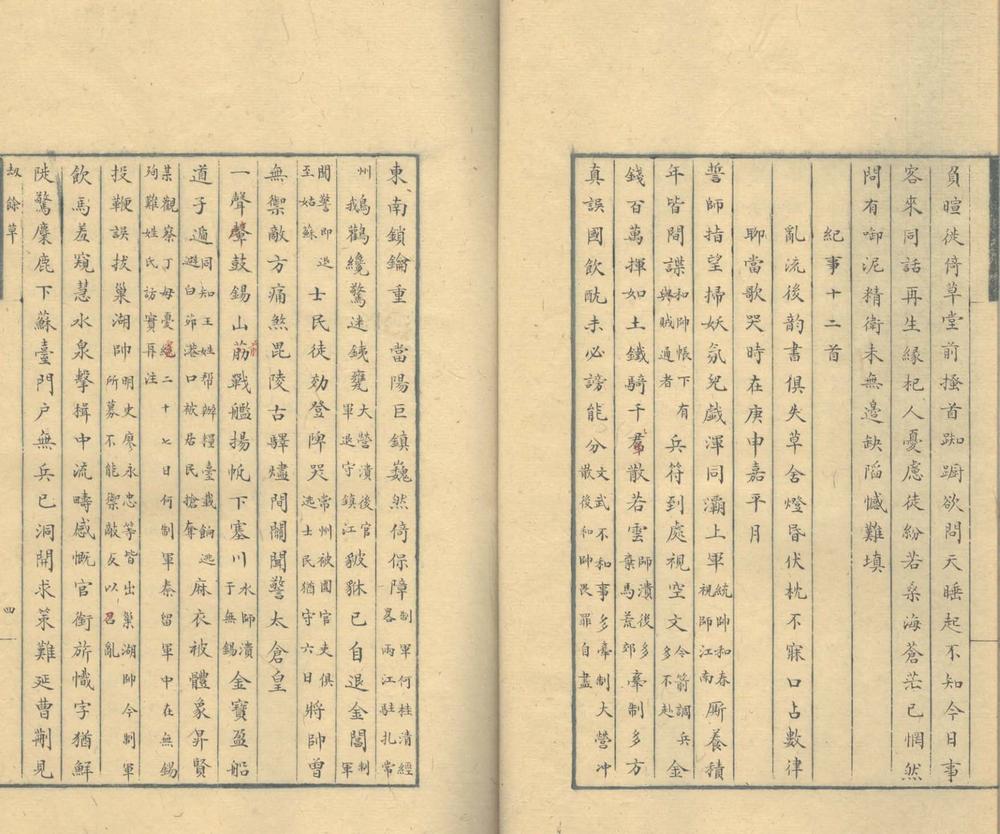 負暄徙倚草堂前搔首踟蹰欲問天睡起不知今日事
客來同話再生緣杞人憂慮徒紛若桑海蒼茫已惘然
問有啣泥精衛未無邊缺陷憾難填
紀事十二首
亂流後韵書俱失草舍燈昏伏枕不寐口占數律
聊當歌哭時在庚申嘉平月
誓師指望掃妖氛兒戲渾同灞上軍統帥和春視師江南厮養積
年皆間諜和帥帳下有與賊通者兵符到處視空文令箭調兵多不赴金
錢百萬揮如土鐵騎千羣散若雲師潰後多棄馬荒郊牽制多方
真誤國飲酖未必謗能分文武不和事多牽制大營冲散後和帥畏罪自盡
東南鎖鑰重當陽巨鎮巍然倚保障制軍何桂清經畧兩江駐扎常
州鵝鸛纔驚迷銕甕大營潰後官軍退守鎮江貔貅已自退金閶制軍
聞警即退至姑蘇士民徒効登陴哭常州被圍官吏俱逃士民猶守六日將帥曾
無禦敵方痛煞毘陵古驛燼間關聞警太倉皇
一聲鼙鼓錫山筋戰艦揚帆下塞川水師潰于無錫金寶盈船
道子遁同知王姓帮辦糧臺載餉逃避白茆港口被居民搶奪麻衣被體象昇賢
某觀察丁母憂二十七日何制軍奏留軍中在無錫殉難姓氏訪實再注
投鞭誤拔巢湖帥明史廖永忠等皆出巢湖帥今制軍所募不能禦敵反以召亂
飲馬羞窺慧水泉擊楫中流疇感慨官銜旂幟字猶鮮
陡驚麋鹿下蘇臺門户無兵已洞開求策難延曹劌見
劫餘草 四